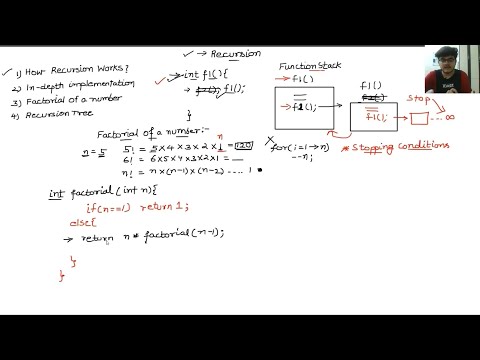 → Recursion
✓ 1) How Recursion Works?
2) In-depth implementation
3) Factorial of a number
4) Recursion Tree
✓ → int f1(){
f1(); f1();
}
Function Stack
→ f1()
→ f1();
f1()
f1();
Stop
.... ∞
* Stopping Conditions
for(i=1→n)
--n;
Factorial of a number:-
n=5
5! = 5×4×3×2×1 = 120
n
6! = 6×5×4×3×2×1 = __
n! = n×(n-1)×(n-2) .... 1
int factorial(int n){
if(n==1) return 1;
else{
→ return n * factorial(n-1);
}
}